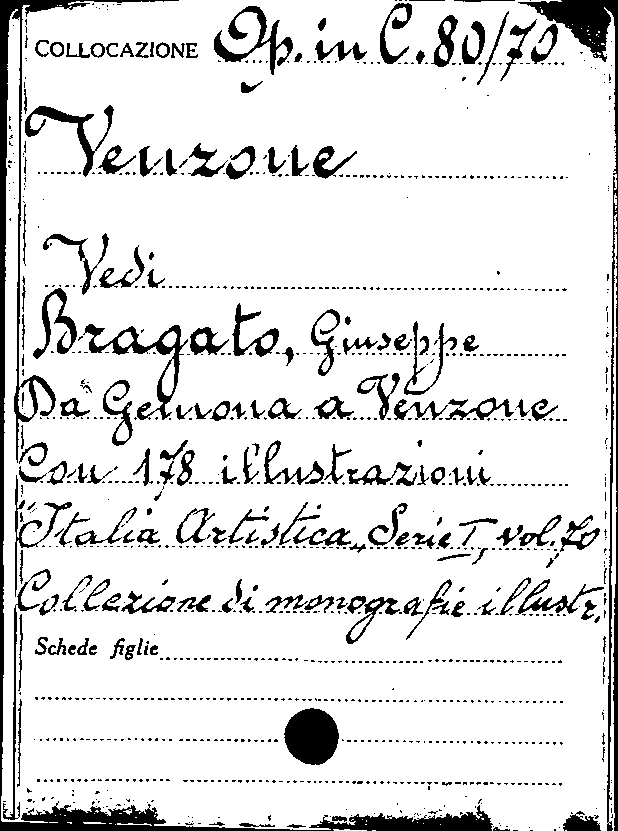 COLLOCAZIONE Op. in C. 80/70
Venzone
Vedi
Bragato, Giuseppe
Da Gemona a Venzone
Con 178 illustrazioni
"Italia Artistica„ Serie I, vol. 70
Collezione di monografie illustr.
Schede figlie